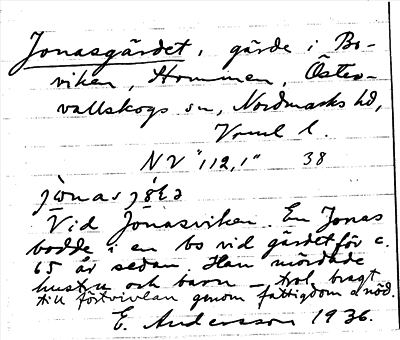 Jonasgärdet, gärde i Bo-
viken, Hommen, Öster-
vallskogs sn, Nordmarks hd,
Vrml l.
NV "112,1" 38
Vid Jonasviken. En Jonas
bodde i en bs vid gärdet för c.
65 år sedan. Han mördade
hustru och barn – trol. bragt
till förtvivlan genom fattigdom o. nöd.
E. Andersson 1936.